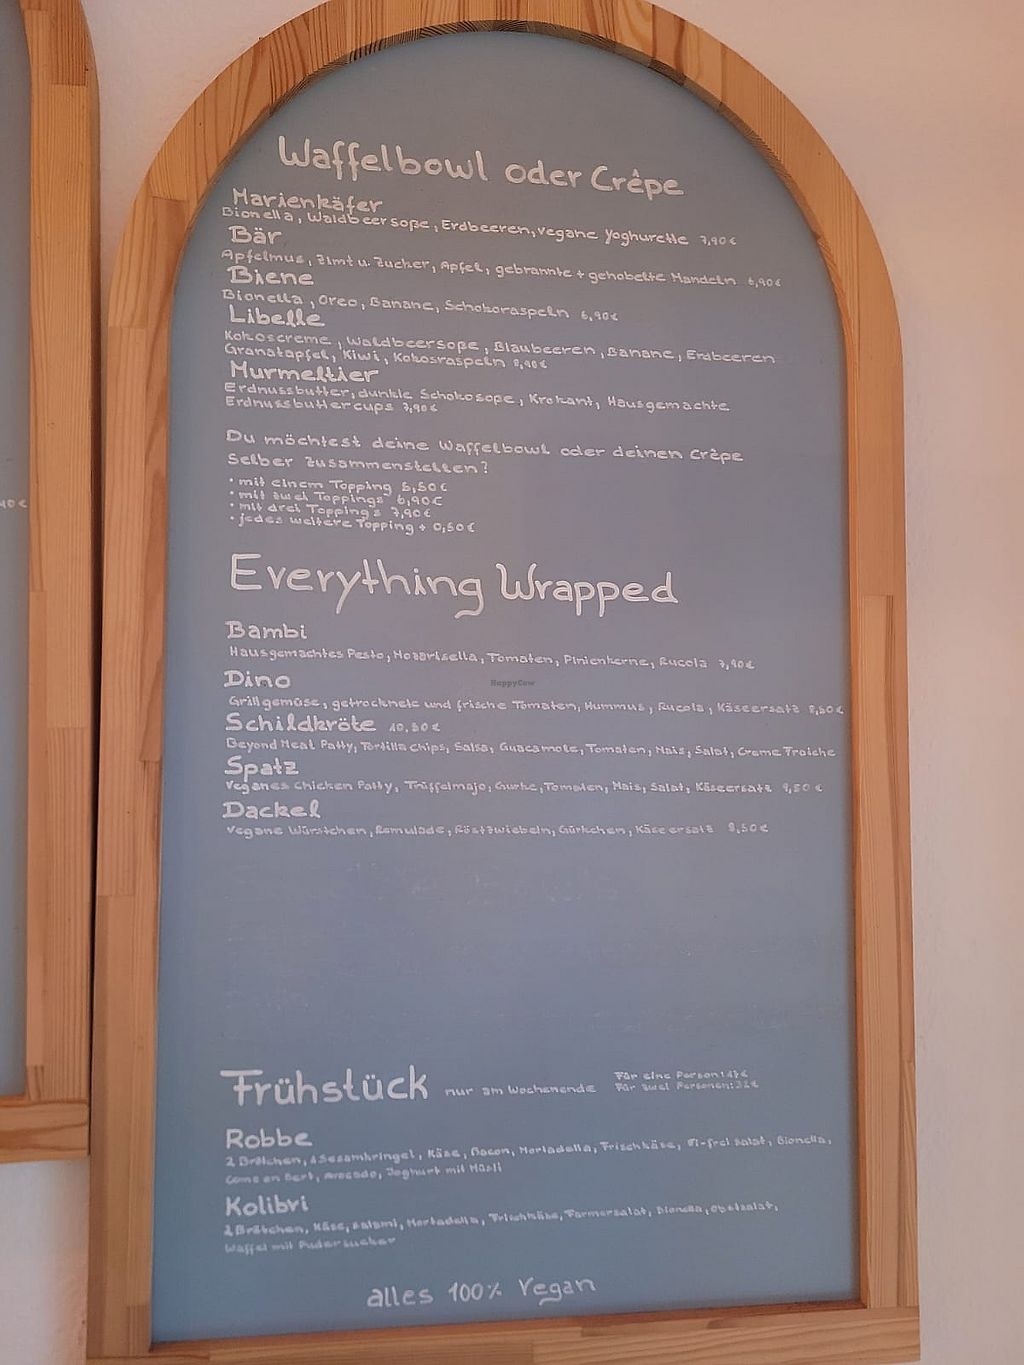 Waffelbowl oder Crêpe
Marienkäfer
Bionella, Waldbeersoße, Erdbeeren, vegane Yoghurette 7,90€
Bär
Apfelmus, Zimt u. Zucker, Apfel, gebrannte + gehobelte Mandeln 6,90€
Biene
Bionella, Oreo, Banane, Schokoraspeln 6,90€
Libelle
Kokoscreme, Waldbeersoße, Blaubeeren, Banane, Erdbeeren
Granatapfel, Kiwi, Kokosraspeln 8,90€
Murmeltier
Erdnussbutter, dunkle Schokosoße, Krokant, Hausgemachte
Erdnussbuttercups 7,90€
Du möchtest deine Waffelbowl oder deinen Crêpe
Selber zusammenstellen?
• mit einem Topping 5,50€
• mit zwei Toppings 6,90€
• mit drei Toppings 7,90€
• jedes weitere Topping + 0,50€
40€
Everything Wrapped
Bambi
Hausgemachtes Pesto, Mozarisella, Tomaten, Pinienkerne, Rucola 7,90€
Dino
HappyCow
Grillgemüse, getrocknete und frische Tomaten, Hummus, Rucola, Käseersatz 8,50€
Schildkröte 10,50€
Beyond Meat Patty, Tortilla Chips, Salsa, Guacamole, Tomaten, Mais, Salat, Creme Fraiche
Spatz
Veganes Chicken Patty, Trüffelmajo, Gurke, Tomaten, Mais, Salat, Käseersatz 9,50€
Dackel
Vegane Würstchen, Remulade, Röstzwiebeln, Gürkchen, Käseersatz 8,50€
Frühstück nur am Wochenende
Für eine Person: 17€
Für zwei Personen: 32€
Robbe
2 Brötchen, 1 Sesamkringel, Käse, Bacon, Mortadella, Frischkäse, Ei-frei Salat, Bionella,
Camembert, Avocado, Joghurt mit Müsli
Kolibri
2 Brötchen, Käse, Salami, Mortadella, Frischkäse, Farmersalat, Bionella, Obstsalat,
Waffel mit Puderzucker
alles 100% Vegan